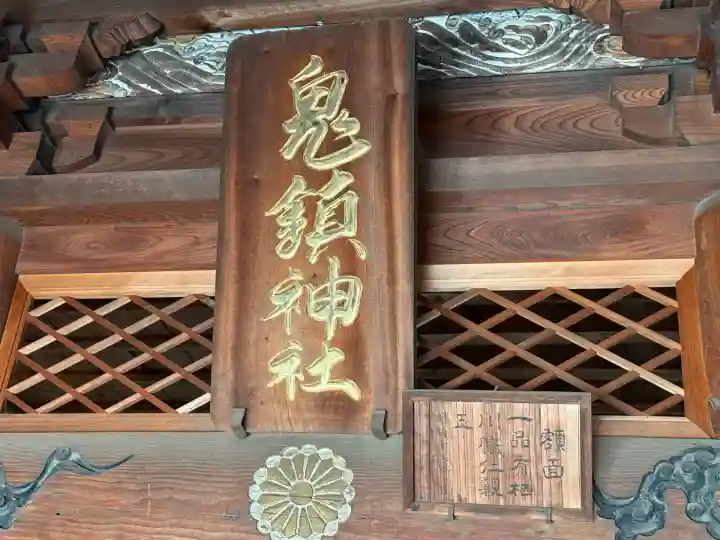 鬼鎮神社
額面
一品有栖
川熾仁親
王